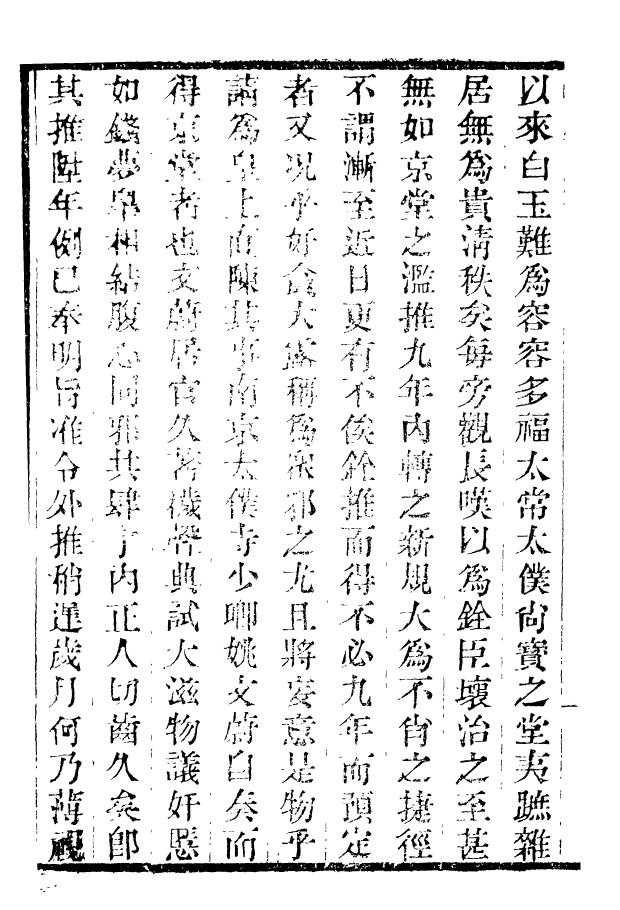 以來白玉難爲容容多福太常太僕尚寶之堂夷蹠雜
居無爲貴清秩矣每旁觀長嘆以爲銓臣壞治之至甚
無如京堂之濫推九年內轉之新規大爲不肖之捷徑
不謂漸至近日更有不俟銓推而得不必九年而預定
者又况乎奸貪大露稱爲衆邪之尤且將妄意是物乎
請爲皇上面陳其事南京太僕寺少卿姚文蔚白而
得京堂者也文蔚居官久著穢聲典試大滋物議奸慝
如錢夢臯相結腹心同邪共肆于內正人切齒久矣卽
其推陞年例已奉明旨准令外推稍遲歲月何乃視